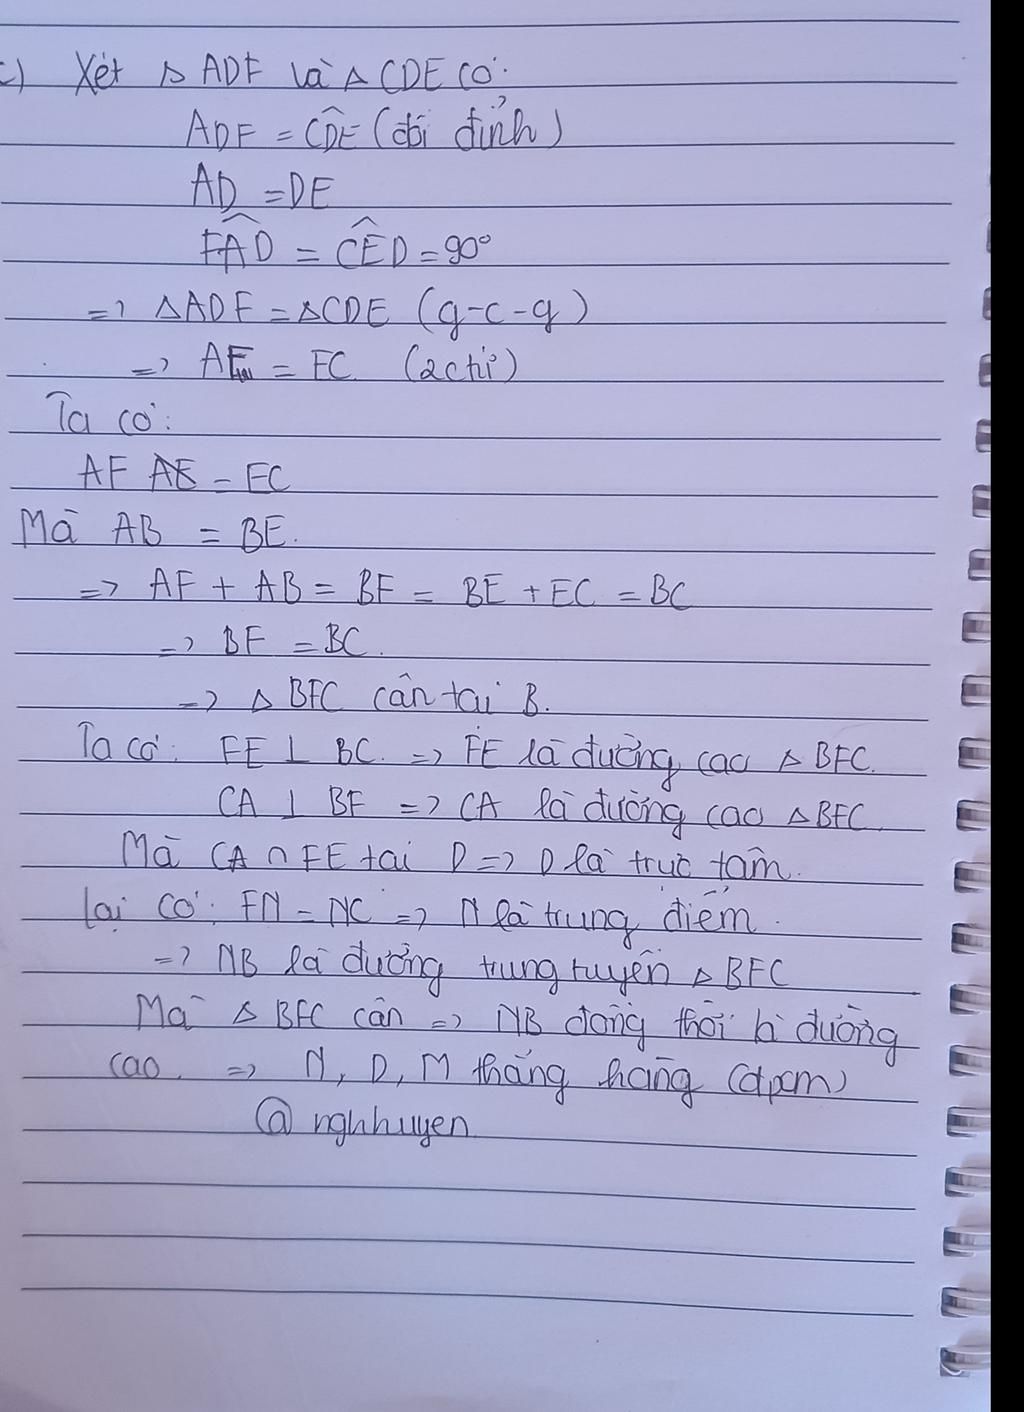 c) Xét △ ADF và △ CDE có:
ADF = CDE (đối đỉnh)
AD = DE
FAD = CED = 90°
=> △ADF = △CDE (g-c-g)
=> AF = EC (2ctứ)
Ta có:
AF = EC
Mà AB = BE.
=> AF + AB = BF = BE + EC = BC
=> BF = BC.
=> △ BFC cân tại B.
Ta có: FE ⊥ BC. => FE là đường cao △ BFC.
CA ⊥ BF => CA là đường cao △BFC.
Mà CA ∩ FE tại D => D là trực tâm.
Lại có: FN = NC => N là trung điểm.
=> NB là đường trung tuyến △ BFC
Mà △ BFC cân => NB đồng thời là đường
cao. => N, D, M thẳng hàng (đpcm)
@nghhuyen